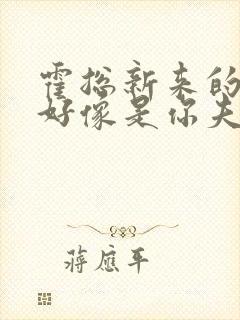 霍总新来的
好像是你夫
蒋应平